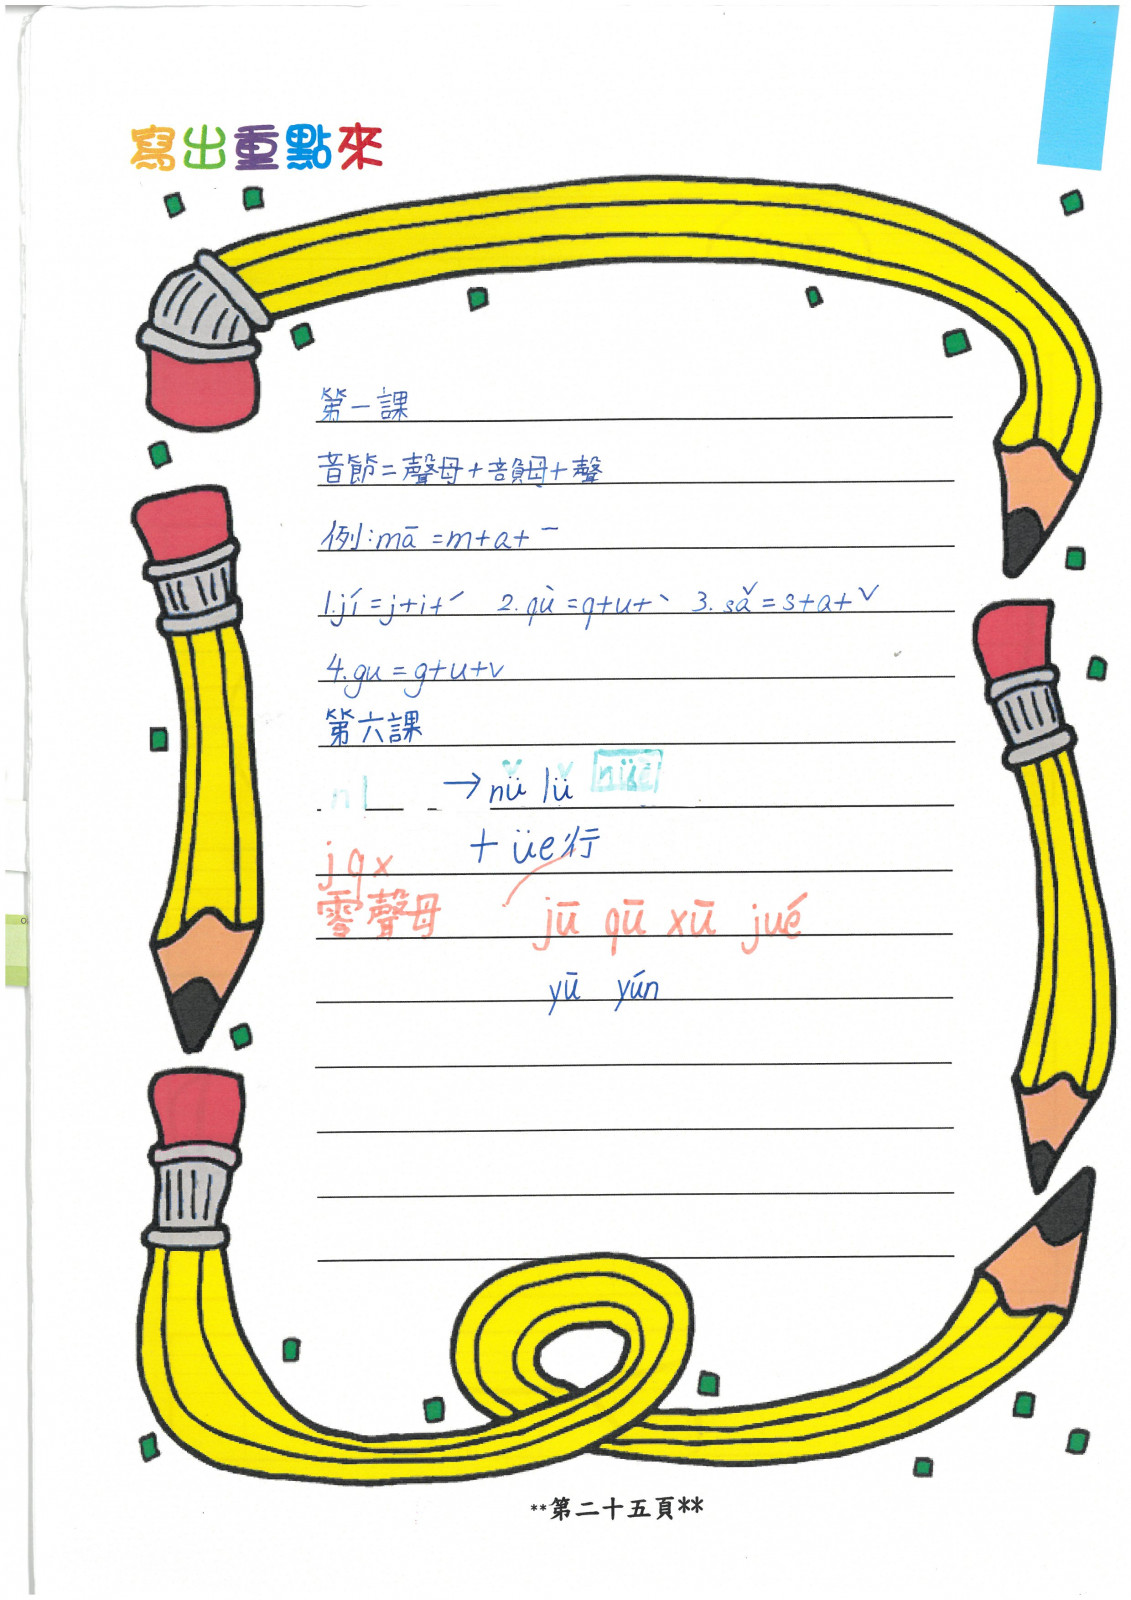 寫出重點來
第一課
音節=聲母+韻母+聲
例:mā=m+a+ˉ
1.jí=j+i+ˊ 2.qù=q+u+ˋ 3.sǎ=s+a+ˇ
4.gu=g+u+v
第六課
n l → nǚ lǚ nüè
+üe行
j q x
零聲母 jū qū xū jué
yū yún
**第二十五頁**